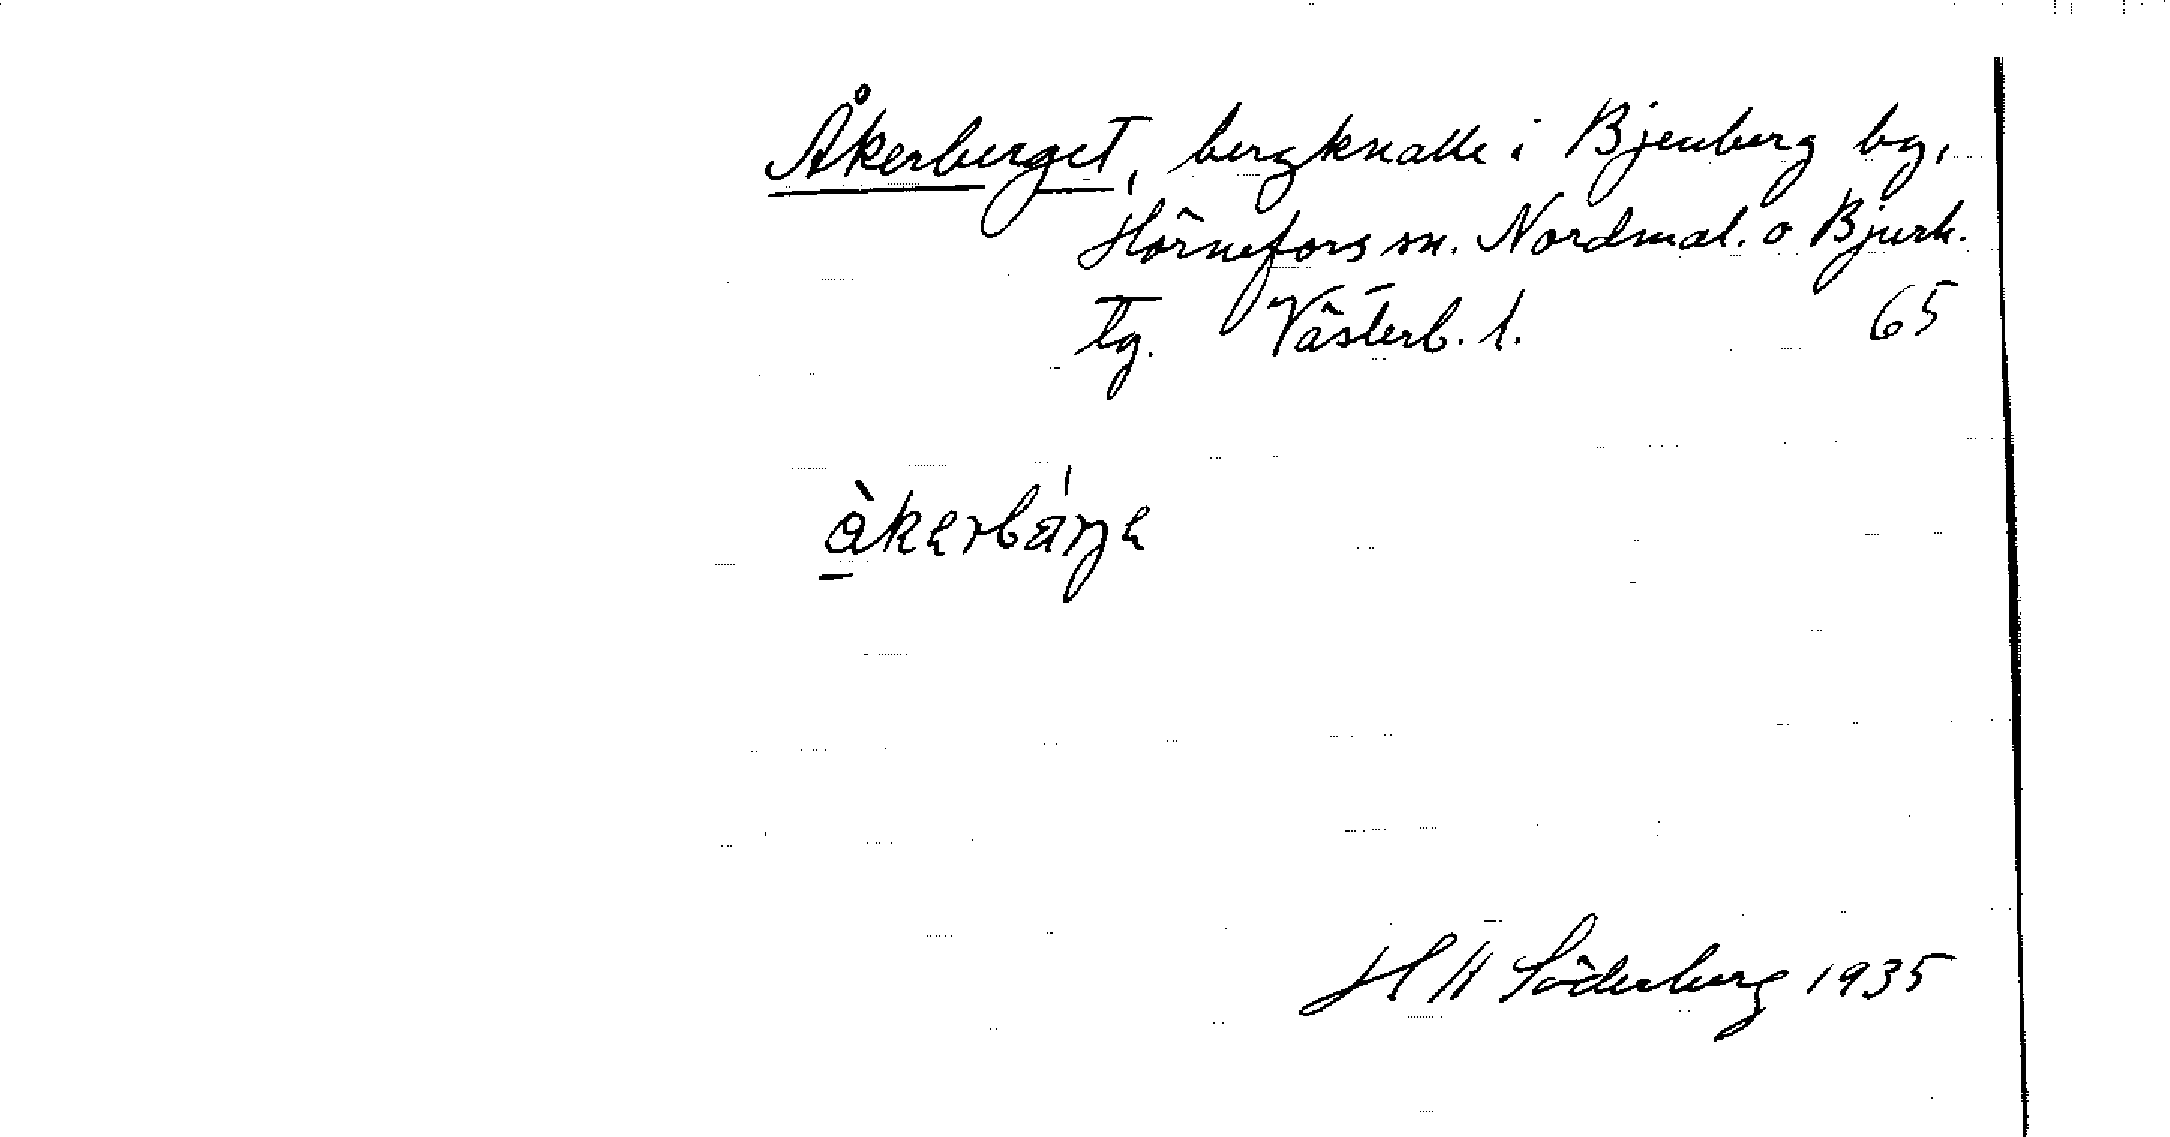 Åkerberget, bergknalle i Bjenberg by,
Hörnefors sn. Nordmal. o Bjurh.
tg. Västerb. l. 65
åkerbárje
H H Söderberg 1935